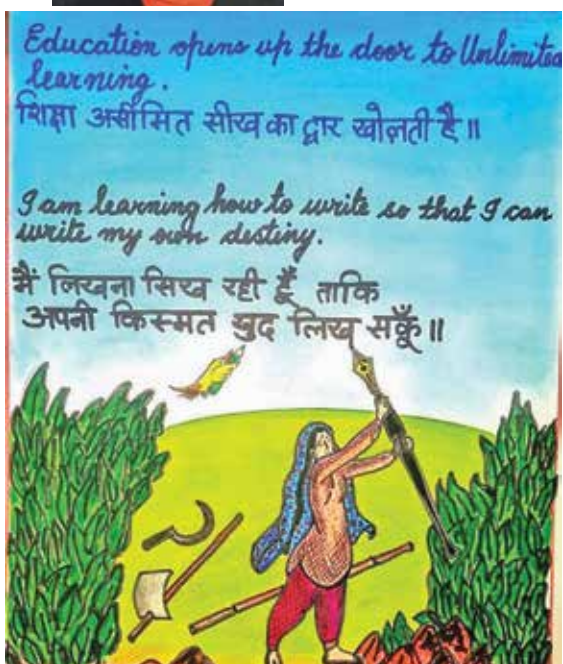 Education opens up the door to Unlimited
learning.
शिक्षा असीमित सीख का द्वार खोलती है॥
I am learning how to write so that I can
write my own destiny.
मैं लिखना सिख रही हूँ ताकि
अपनी किस्मत खुद लिख सकूँ॥